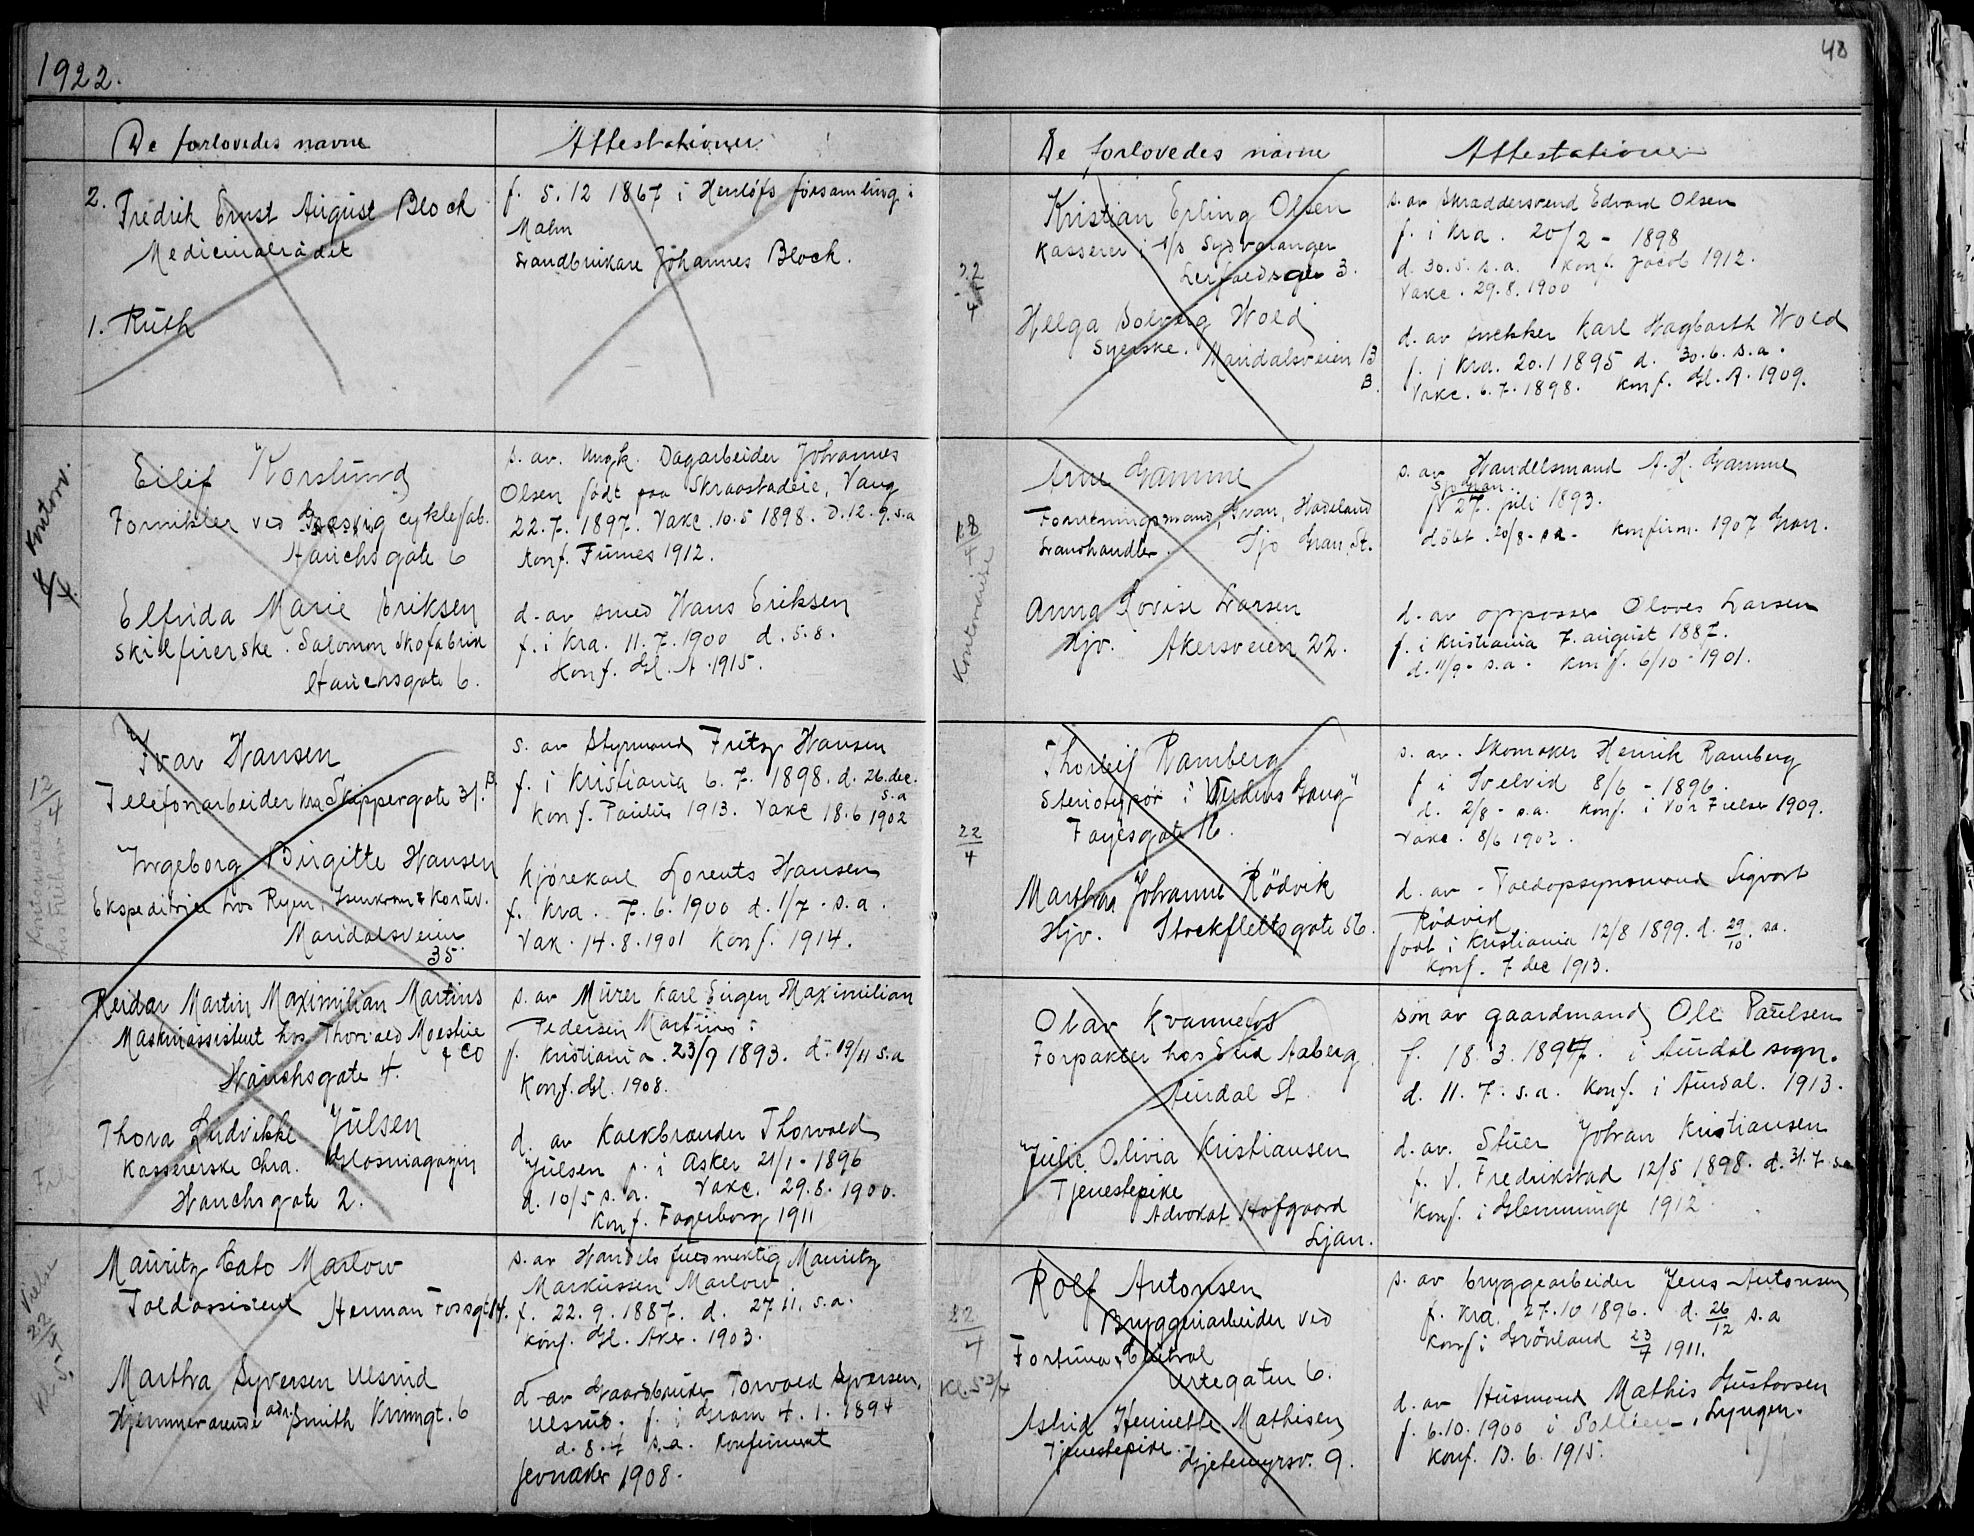 1922.
De forlovedes navne
Attestationer
2. Fredrik Ernst August Block
Medicinalrådet
1. Ruth
f. 5.12 1867 i församling i
Malm
Johannes Block.
8/4 Kontorv.
Eilif Korslund
Fornikler ved cyklefab.
Hauchsgate 6
Elfrida Marie Eriksen
Skilfirerske. Salomon Skofabrik
Hauchsgate 6.
s. av. Ungk. Dagarbeider Johannes
Olsen født paa Skraastadeie, Vang
22.7. 1897. Vakc. 10.5 1898. D. 12.9. s.a
Konf. Furnes 1912.
d. av smed Hans Eriksen
f. i Kra. 11.7.1900 d. 5.8.
Konf. Gl. A. 1915.
12/4
Ivar Hansen
Telefonarbeider Kra Skippergate 31. B
Ingeborg Birgitte Hansen
Ekspeditrice hos Ryen,
Maridalsveien
35.
s. av Styrmand Fritz Hansen
f. i Kristiania 6.7. 1898. d. 26. dec.
s.a
Konf. Paulus 1913. Vakc 18.6 1902
Kjørekarl Lorents Hansen
f. Kra. 7.6.1900 d. 1/7. s.a.
Vak. 14.8.1901 Konf. 1914.
Reidar Martin Maximilian Martins
Maskinassistent hos Thorvald Moestue
& Co
Hauchsgate 4.
Thora Ludvikke Julsen
Kassererske Chra. Glasmagazin
Hauchsgate 2.
s. av Murer Karl Eugen Maximilian
Pedersen Martins
f. Kristiania. 23/9 1893. d. 19/11 s.a
Konf. Gl. 1908.
d. av Kalkbrænder Thorvald
Julsen f. i Asker 21/1-1896
d. 10/5 s.a. Vakc. 29.8.1900.
Konf. Fagerborg 1911
Vielse
22/4
Kl. 5.
Mauritz Cato Marlow
Toldassistent Herman Fossgt. 14.
Martha Syversen Ulsrud
Hjemmeværende adr. Smith Krumgt. 6
s. av Handelsfuldmektig Mauritz
Markussen Marlow
f. 22.9.1887. d. 27.11. s.a.
Konf. Gl. Aker. 1903.
d. av Gaardbruker Torvald Syversen,
Ulsrud. f. i Gran 4.1.1894
d. 8.4 s.a. Konfirmert
Jevnaker 1908.
48
De forlovedes navne
Attestationer
22/4
Kristian Erling Olsen
Kasserer i A/S Sydvaranger
3.
Helga Solveig Wold
Syerske. Maridalsveien 13
B.
s. av Skræddersvend Edvard Olsen
f. i Kra. 20/2 - 1898
d. 30.5. s.a. Konf. Jacob 1912.
Vakc. 29.8.1900
d. av snekker Karl Hagbarth Wold
f. i Kra. 20.1 1895 d. 30.6. s.a.
Vakc. 6.7.1898. Konf. Gl. A. 1909.
28/4
Kontorvielse
Arne Gamme
Forretningsmand, Gran, Hadeland
Gran St.
Anna Lovise Larsen
Hjv. Akersveien 22.
s. av Handelsmand A. H. Gamme
Gran.
f. 27. juli 1893.
døbt. 20/8 - s.a. - Konfirm. 1907 Gran.
d. av oppasser Oloves Larsen
f. i Kristiania 7. august 1887.
d. 11/9- s.a. Konf. 6/10 - 1901.
22/4
Thorleif Ramberg
Steriotypør i "Verdens Gang"
Fayesgate 16.
Martha Johanne Rødvik
Hjv. Stockfletsgate 56.
s. av. Skomaker Henrik Ramberg
f i Svelvik 8/6 - 1896.
d. 2/8 - s.a. Konf. i Vor Frelser 1909.
Vakc. 8/6 1902.
d. av - Toldopsynsmand Sigvart
Rødvik
født i Kristiania 12/8 1899. d. 29/10. s.a.
Konf. 7 dec 1913.
Olav Kvannelos
Forpakter hos Aaberg
Aurdal St.
Julie Olivia Kristiansen
Tjenestepike
Advokat Hofgaard
Ljan.
søn av gaardmand Ole Paulsen
f. 18.3.1897. i Aurdal sogn.
d. 11.7. s.a. Konf. i Aurdal. 1913.
d. av. Stuer Johan Kristiansen
f. V. Fredrikstad 12/5 1898. d. 31.7. s.a
Konf. i Glemminge 1912
22/4
Kl. 5 3/4
Rolf Antonsen
Bryggeriarbeider ved
Fortuna, Central
Urtegaten 6.
Astrid Henriette Mathisen
Tjenestepike.
Gjetemyrsv. 9.
s. av bryggearbeider Jens Antonsen
f. Kra. 27.10 1896. d. 26/12 s.a
Konf i Grønland 23/7 1911.
d. av Husmand Mathis Gustavsen
f. 6.10.1900 i Lyngen.
Konf. 13.6.1915.